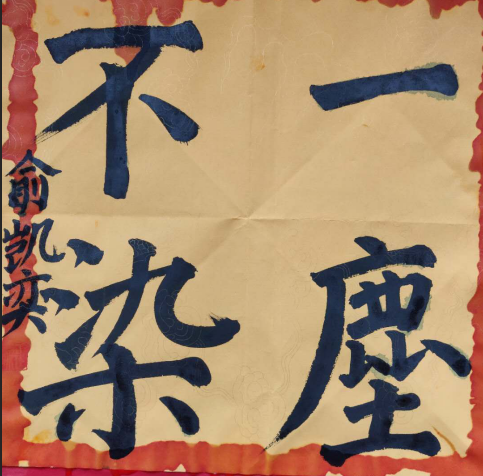 一塵
不染
俞凯奕